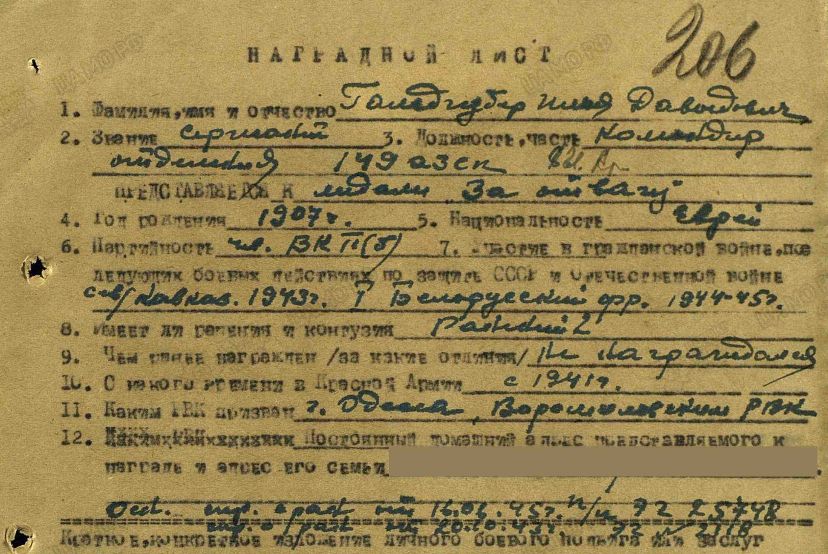 206
НАГРАДНОЙ ЛИСТ
1. Фамилия, имя и отчество Гольдгубер Илья Давыдович
2. Звание сержант 3. Должность, часть командир
отделения 149 АЗСП
ПРЕДСТАВЛЯЕТСЯ К медали "За отвагу"
4. Год рождения 1907 г. 5. Национальность еврей
6. Партийность чл. ВКП(б) 7. Участие в гражданской войне, пос
ледующих боевых действиях по защите СССР и отечественной войне
Сев/Кавказ. 1943г. 1 Белорусский фр. 1944-45г.
8. Имеет ли ранения и контузия Ранений 2
9. Чем ранее награжден /за какие отличия/ Не награждался
10. С какого времени в Красной Армии с 1941г.
11. Каким РВК призван г. Одесса, Ворошиловским РВК
12. Постоянный домашний адрес представляемого к
награде и адрес его семьи
16.06.45г. 25748
Краткое, конкретное изложение личного боевого подвига или заслуг